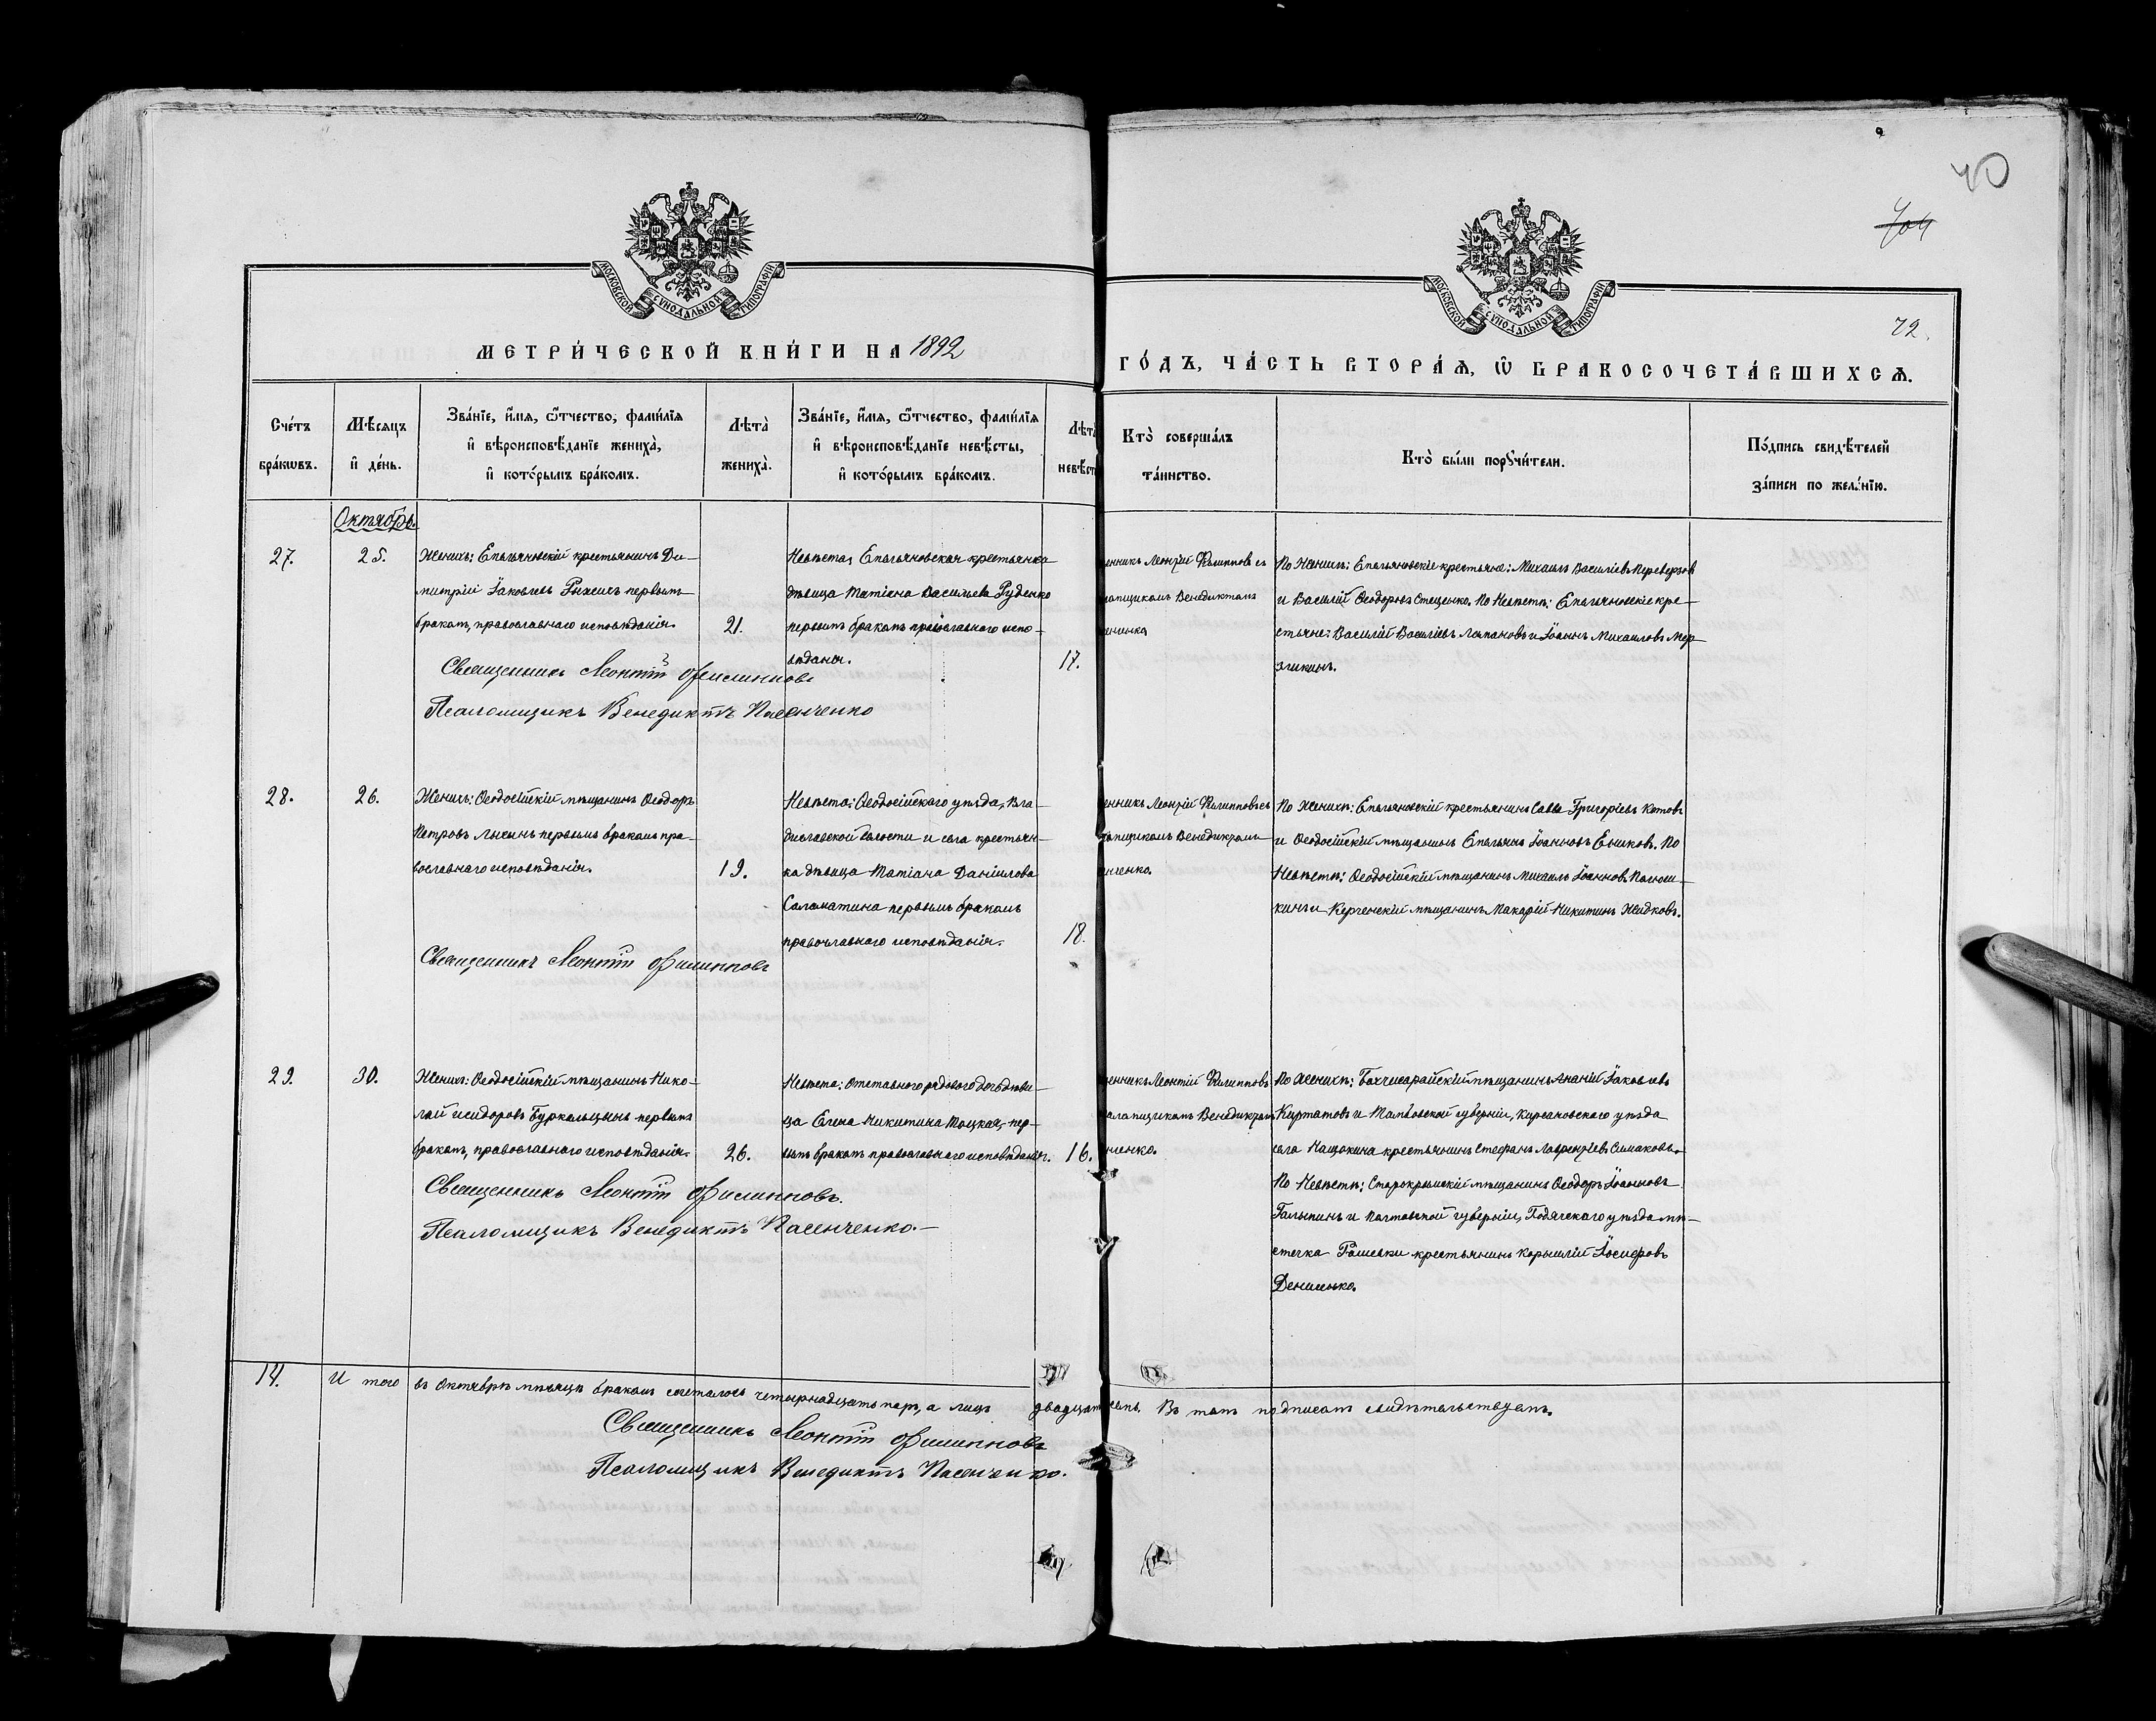 40
704
72.
МОСКОВСКОЙ СѴНОДАЛЬНОЙ ТИПОГРАФІИ
МОСКОВСКОЙ СѴНОДАЛЬНОЙ ТИПОГРАФІИ
МЕТРИ́ЧЕСКОЙ КНИ́ГИ НА 1892
ГО́ДЪ, ЧА́СТЬ ВТОРА́Ѧ, Ѽ БРАКОСОЧЕТА́ВШИХСѦ.
Сче́тъ
бра́кѡвъ.
Мѣ́сяцъ
и҆ де́нь.
Зва́нїе, и҆́мя, ѻ҆́тчество, фами́лїя
и҆ вѣроисповѣ́данїе жениха̀,
и҆ кото́рымъ бра́комъ.
Лѣта̀
жениха̀.
Зва́нїе, и҆́мя, ѻ҆́тчество, фами́лїя
и҆ вѣроисповѣ́данїе невѣ́сты,
и҆ кото́рымъ бра́комъ.
Лѣта
невѣст
Кто̀ соверша́лъ
та́инство.
Кто̀ бы́ли порꙋчи́тели.
По́дпись свидѣ́телей
за́писи по жела́нїю.
Октябрь.
27.
25.
Женихъ: Емельяновскій крестьянинъ Ди-
митрій Іаковлевъ Рыжихъ первымъ
бракомъ, православнаго исповѣданія.
21.
Невѣста: Емельяновская крестьянка
дѣвица Татіана Васильева Руденко
первымъ бракомъ православнаго испо-
вѣданія.
17.
енникъ Леонтій Филипповъ съ
омщикомъ Венедиктомъ
енченко
По Женихѣ: Емельяновскіе крестьяне: Михаилъ Василіевъ Переверзовъ
и Василій Ѳеодоровъ Стеценко. По Невѣстѣ: Емельяновскіе кре-
стьяне: Василій Василіевъ Лопановъ и Іоаннъ Михаиловъ Мер-
зликинъ.
Священникъ Леонтій Филипповъ
Псаломщикъ Венедиктъ Пасенченко
28.
26.
Женихъ: Ѳеодосійскій мѣщанинъ Ѳеодоръ
Петровъ Лысынъ первымъ бракомъ пра-
вославнаго исповѣданія.
19.
Невѣста: Ѳеодосійскаго уѣзда, Вла-
диславской волости и села крестьян-
ка дѣвица Татіана Даніилова
Саламатина первымъ бракомъ
православнаго исповѣданія.
18.
енникъ Леонтій Филипповъ съ
омщикомъ Венедиктомъ
енченко.
По Женихѣ: Емельяновскій крестьянинъ Савва Григоріевъ Котовъ
и Ѳеодосійскій мѣщанинъ Емельянъ Іоанновъ Ениковъ. По
Невѣстѣ: Ѳеодосійскій мѣщанинъ Михаилъ Іоанновъ
кинъ и Керченскій мѣщанинъ Макарій Никитинъ Жидковъ.
Священникъ Леонтій Филипповъ
29.
30.
Женихъ: Ѳеодосійскій мѣщанинъ Нико-
лай Исидоровъ Буркальцынъ первымъ
бракомъ, православнаго исповѣданія.
26.
Невѣста: Отставного рядового дочь дѣви-
ца Елена Никитина Тоцкая, пер-
вымъ бракомъ православнаго исповѣданія.
16.
енникъ Леонтій Филипповъ
аломщикомъ Венедиктомъ
нченко.
По Женихѣ: Бахчисарайскій мѣщанинъ Ананій Іаковлевъ
Курпатовъ и Тамбовской губерніи, Кирсановскаго уѣзда
села Нащокина крестьянинъ Стефанъ Лаврентіевъ Симаковъ.
По Невѣстѣ: Старокрымскій мѣщанинъ Ѳеодоръ Іоанновъ
Галыкинъ и Полтавской губерніи, Гадячскаго уѣзда мѣ-
стечка Рашевки крестьянинъ Корнилій Іосифовъ
Денисенко.
Священникъ Леонтій Филипповъ.
Псаломщикъ Венедиктъ Пасенченко.
14.
И того въ Октябрѣ мѣсяцѣ бракомъ сочеталось четырнадцать паръ, а лицъ двадцать семь. Въ томъ подписомъ свидѣтельствуемъ.
Священникъ Леонтій Филипповъ
Псаломщикъ Венедиктъ Пасенченко.